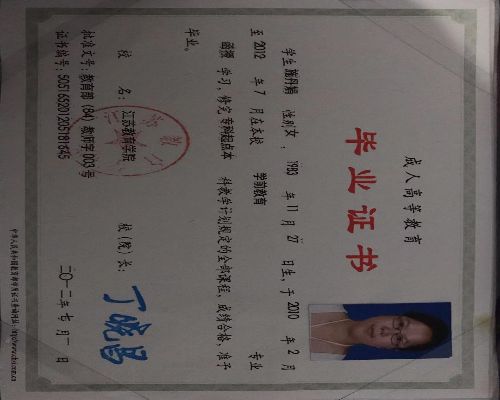 成人高等教育
毕业证书
学生施丹娟 性别女，1983 年 11 月 27 日生，于 2010 年 2 月
至 2012 年 7 月在本校 学前教育 专业
函授 学习，修完 专科起点本 科教学计划规定的全部课程，成绩合格，准予
毕业。
校 名：江苏教育学院 校（院）长：丁晓昌
批准文号：教育部（84）教师字 003 号
证书编号：505165201205181845 二〇一二年七月一日
中华人民共和国教育部学历证书查询网址：http://www.chsi.com.cn